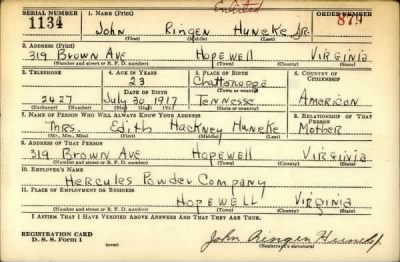 Enlisted
SERIAL NUMBER 1. NAME (Print) ORDER NUMBER
1134 John Ringen Huneke Jr. 879
(First) (Middle) (Last)
2. ADDRESS (Print)
319 Brown Ave Hopewell Virginia
(Number and street or R. F. D. number) (Town) (County) (State)
3. TELEPHONE 4. AGE IN YEARS 5. PLACE OF BIRTH 6. COUNTRY OF CITIZENSHIP
23 Chattanooga
DATE OF BIRTH (Town or county)
2427 July 30 1917 Tennesse American
(Exchange) (Number) (Mo.) (Day) (Yr.) (State or country)
7. NAME OF PERSON WHO WILL ALWAYS KNOW YOUR ADDRESS 8. RELATIONSHIP OF THAT PERSON
Mrs. Edith Hackney Huneke Mother
(Mr., Mrs., Miss) (First) (Middle) (Last)
9. ADDRESS OF THAT PERSON
319 Brown Ave Hopewell Virginia
(Number and street or R. F. D. number) (Town) (County) (State)
10. EMPLOYER'S NAME
Hercules Powder Company
11. PLACE OF EMPLOYMENT OR BUSINESS
Hopewell Virginia
(Number and street or R. F. D. number) (Town) (County) (State)
I AFFIRM THAT I HAVE VERIFIED ABOVE ANSWERS AND THAT THEY ARE TRUE.
REGISTRATION CARD
D. S. S. Form 1 John Ringen Huneke Jr.
(Registrant's signature)